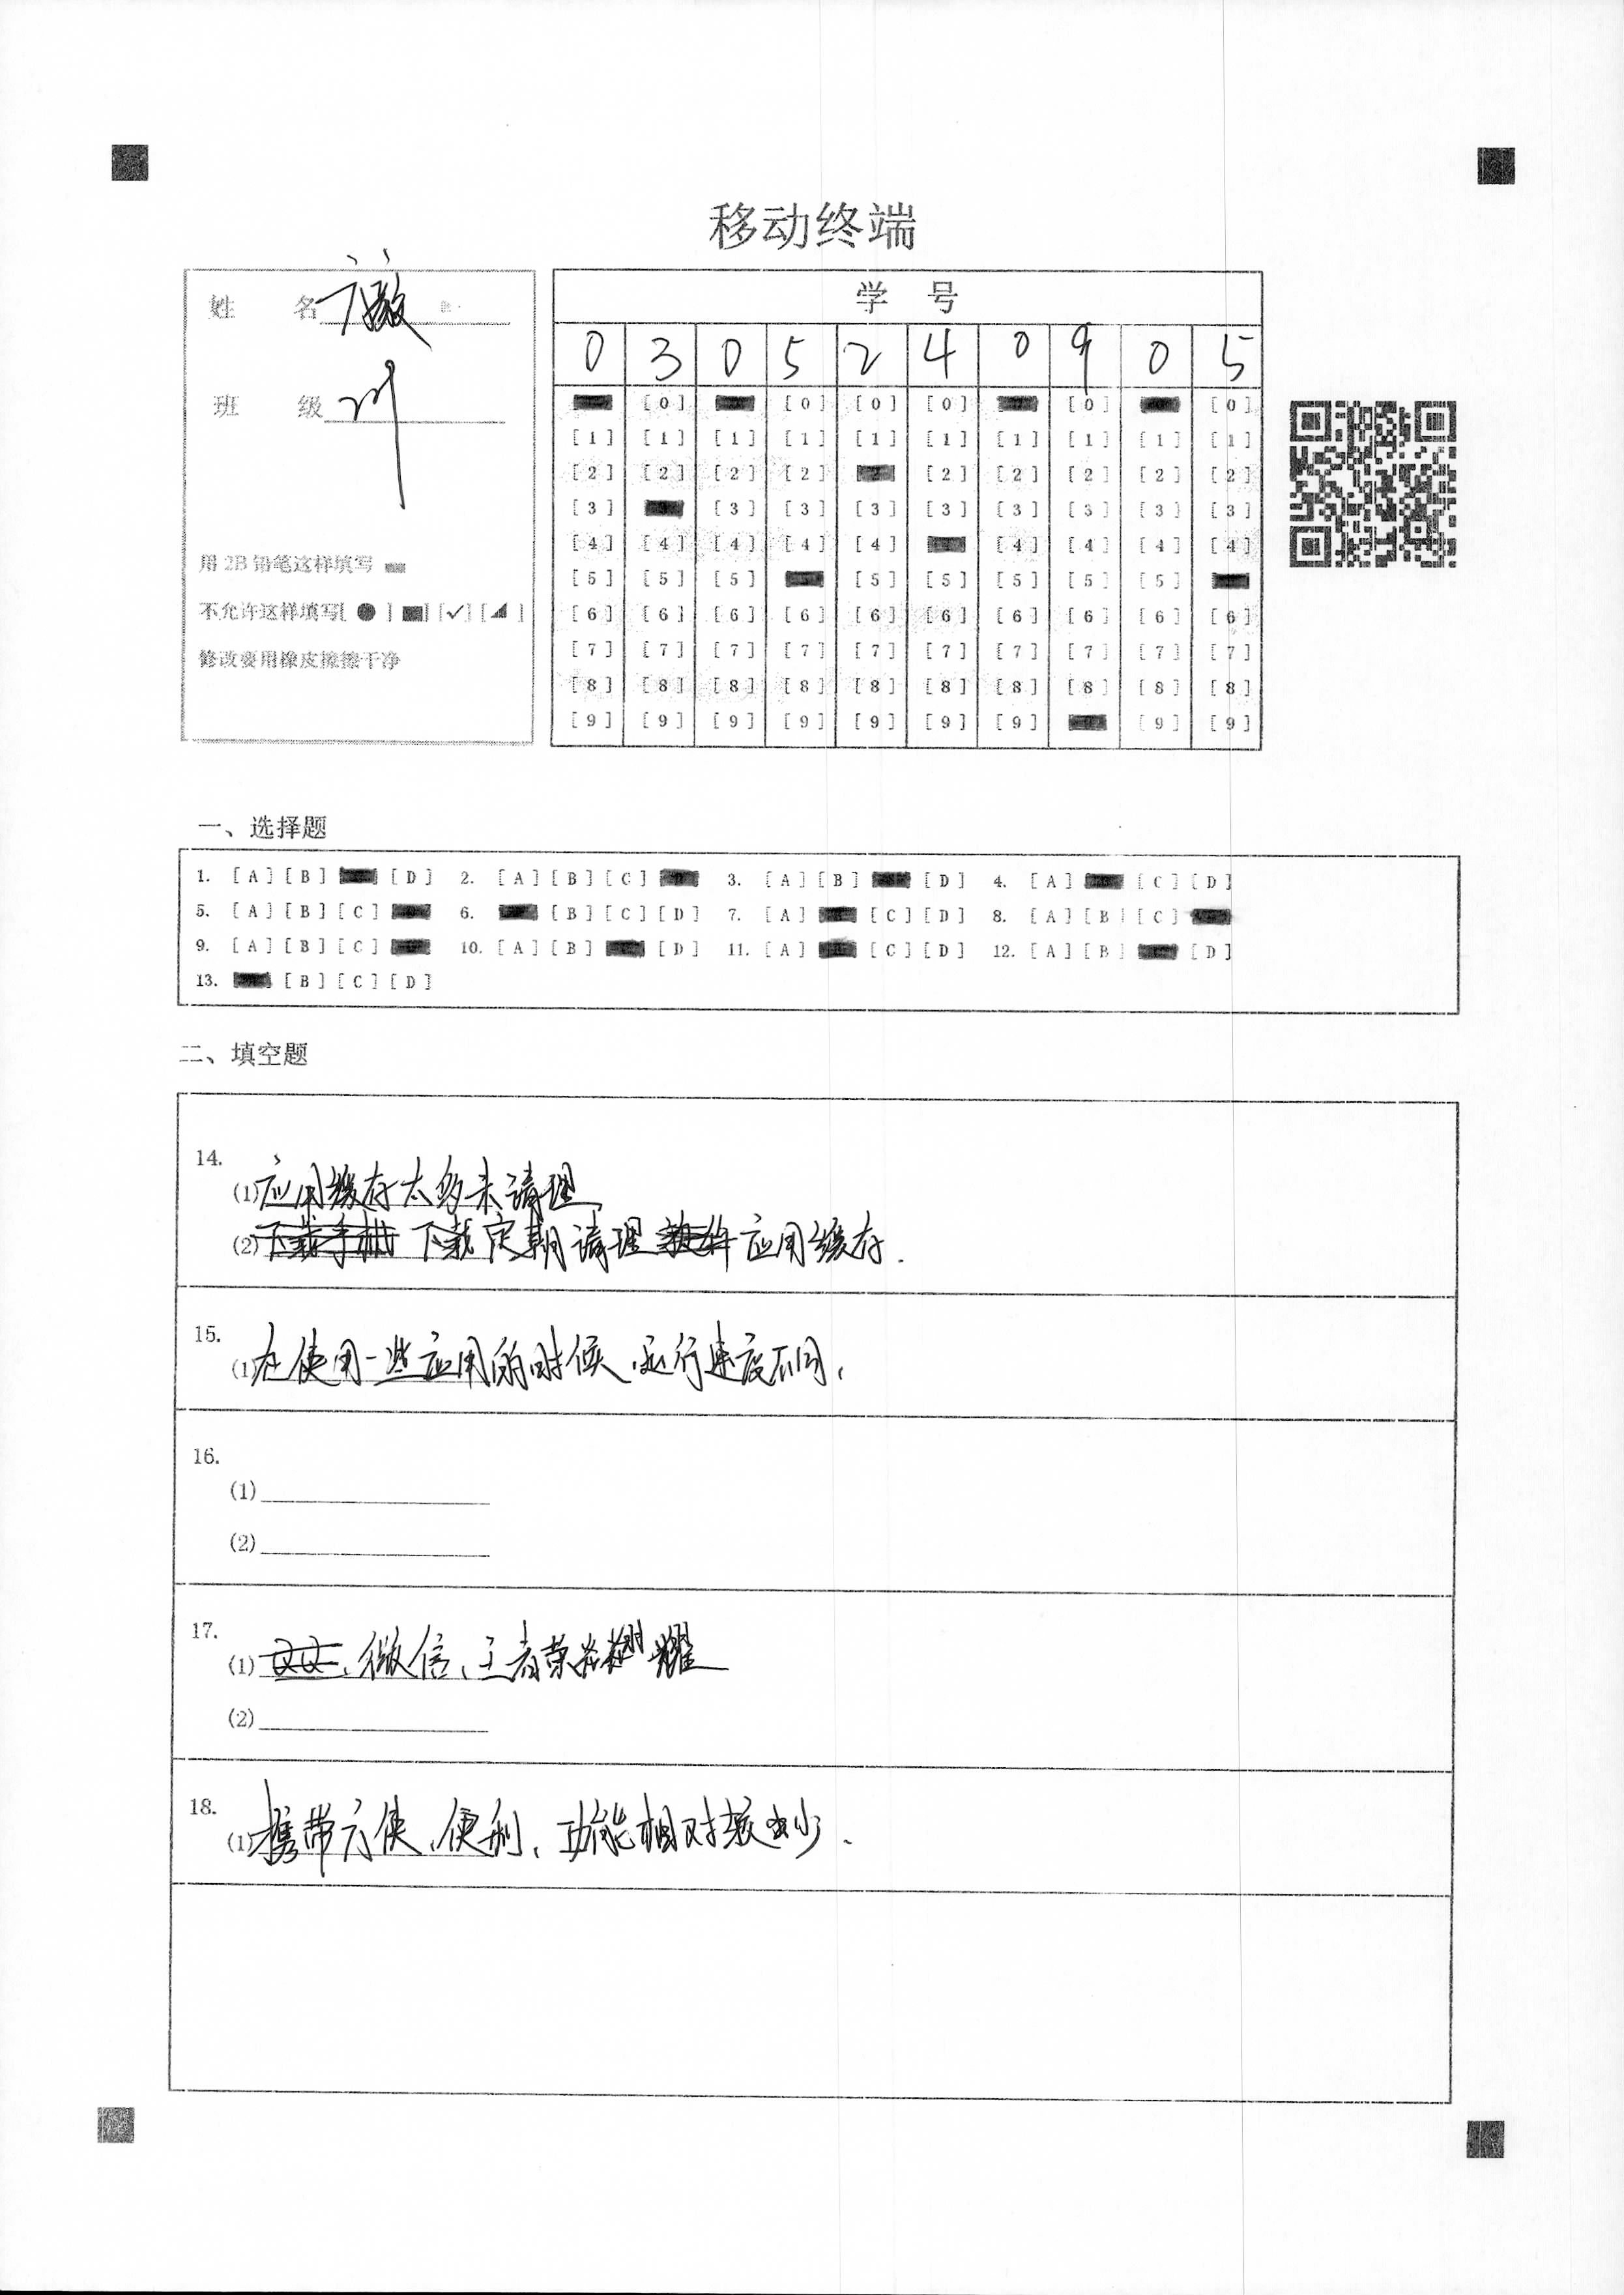 移动终端
姓 名
班 级
用 2B 铅笔这样填写
不允许这样填写[ ● ] [■] [✓] [◢ ]
修改要用橡皮擦擦干净
学 号
0 3 0 5 2 4 0 9 0 5
[0] [0] [0] [0] [0] [0]
[1] [1] [1] [1] [1] [1] [1] [1] [1] [1]
[2] [2] [2] [2] [2] [2] [2] [2] [2]
[3] [3] [3] [3] [3] [3] [3] [3] [3]
[4] [4] [4] [4] [4] [4] [4] [4] [4]
[5] [5] [5] [5] [5] [5] [5] [5]
[6] [6] [6] [6] [6] [6] [6] [6] [6] [6]
[7] [7] [7] [7] [7] [7] [7] [7] [7] [7]
[8] [8] [8] [8] [8] [8] [8] [8] [8] [8]
[9] [9] [9] [9] [9] [9] [9] [9] [9]
一、选择题
1. [A] [B] [D] 2. [A] [B] [C] 3. [A] [B] [D] 4. [A] [C] [D]
5. [A] [B] [C] 6. [B] [C] [D] 7. [A] [C] [D] 8. [A] [B] [C]
9. [A] [B] [C] 10. [A] [B] [D] 11. [A] [C] [D] 12. [A] [B] [D]
13. [B] [C] [D]
二、填空题
14.
(1) 应用缓存太多未清理
(2) 下载定期清理应用缓存.
15.
(1) 在使用一些应用的时候,运行速度不同,
16.
(1)
(2)
17.
(1) 微信、王者荣耀
(2)
18.
(1) 携带方便、便利、功能相对较少.